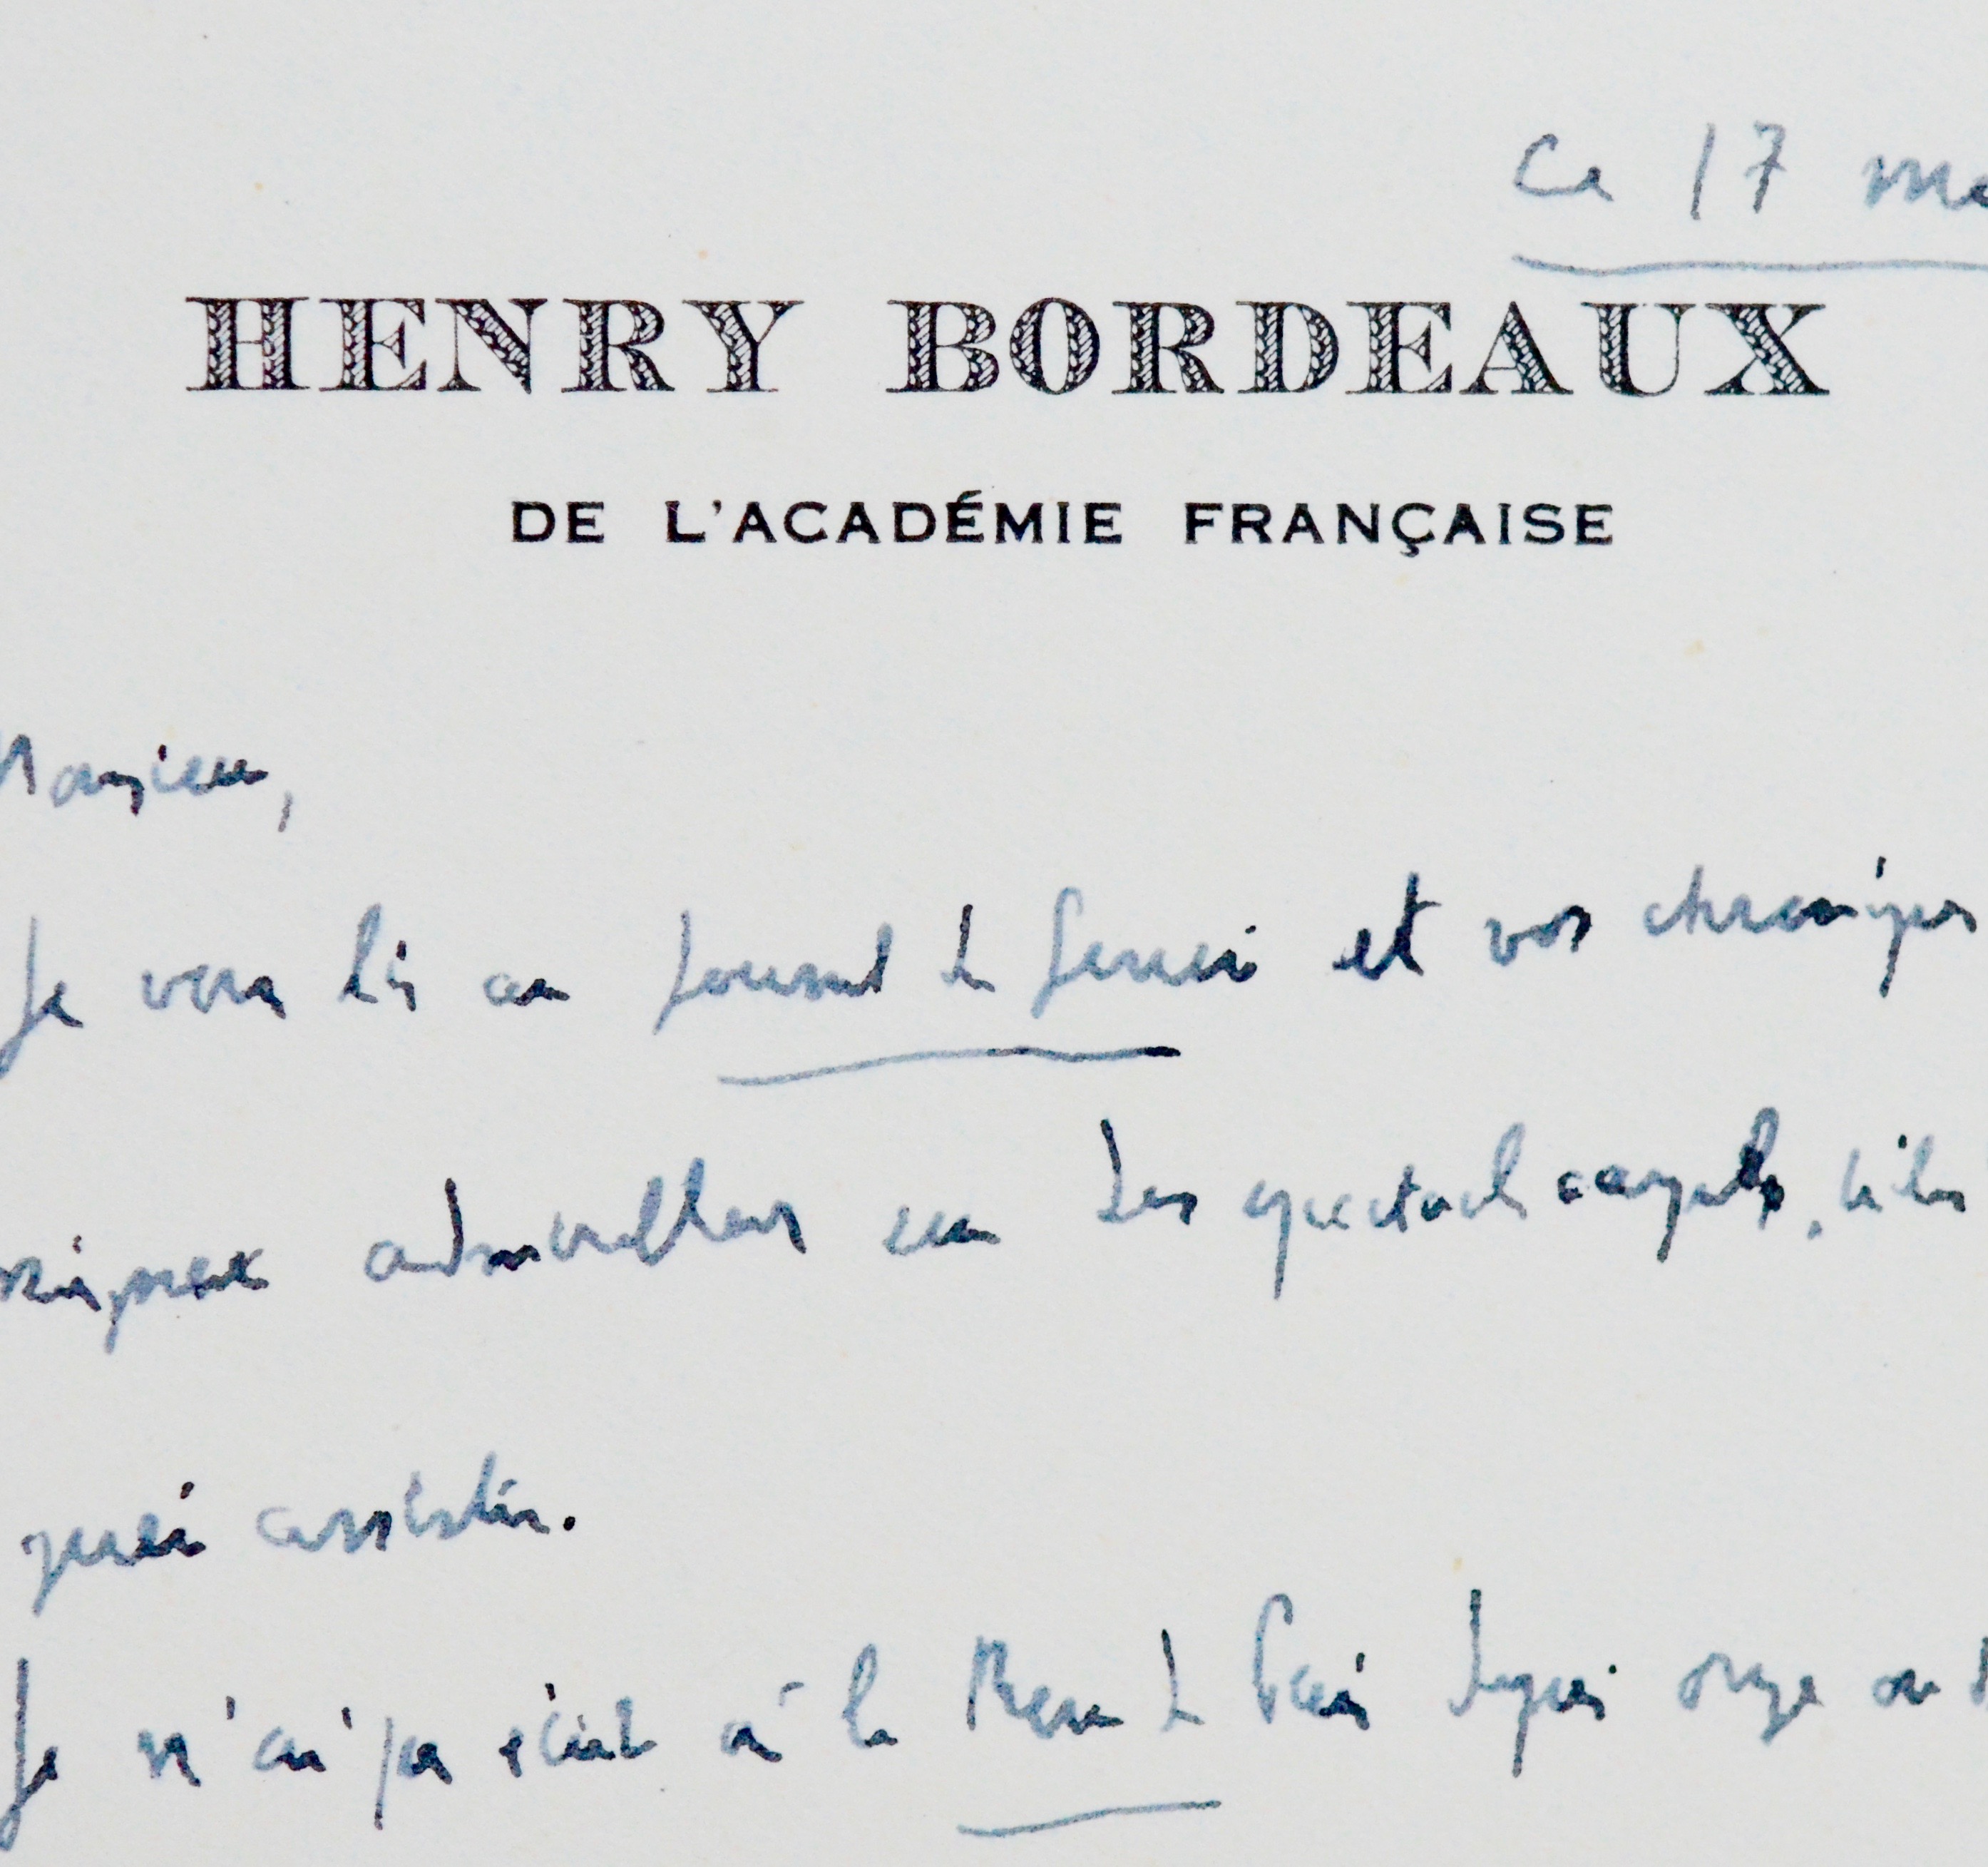 Ce 17 ma
HENRY BORDEAUX
DE L'ACADÉMIE FRANÇAISE
Monsieur,
Je vous lis au Journal de Genève et vos chroniques
admirables sur des spectacles auxquels
assister.
Je n'ai pas écrit à la Revue de Paris depuis onze ou